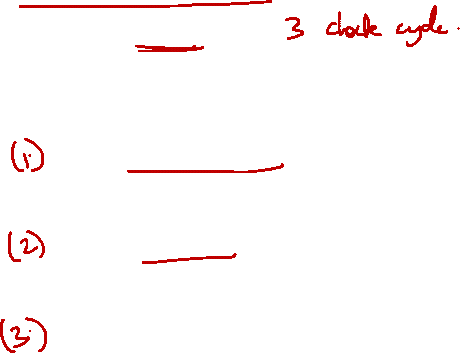 3 clock cycle.
(1.)
(2)
(3.)